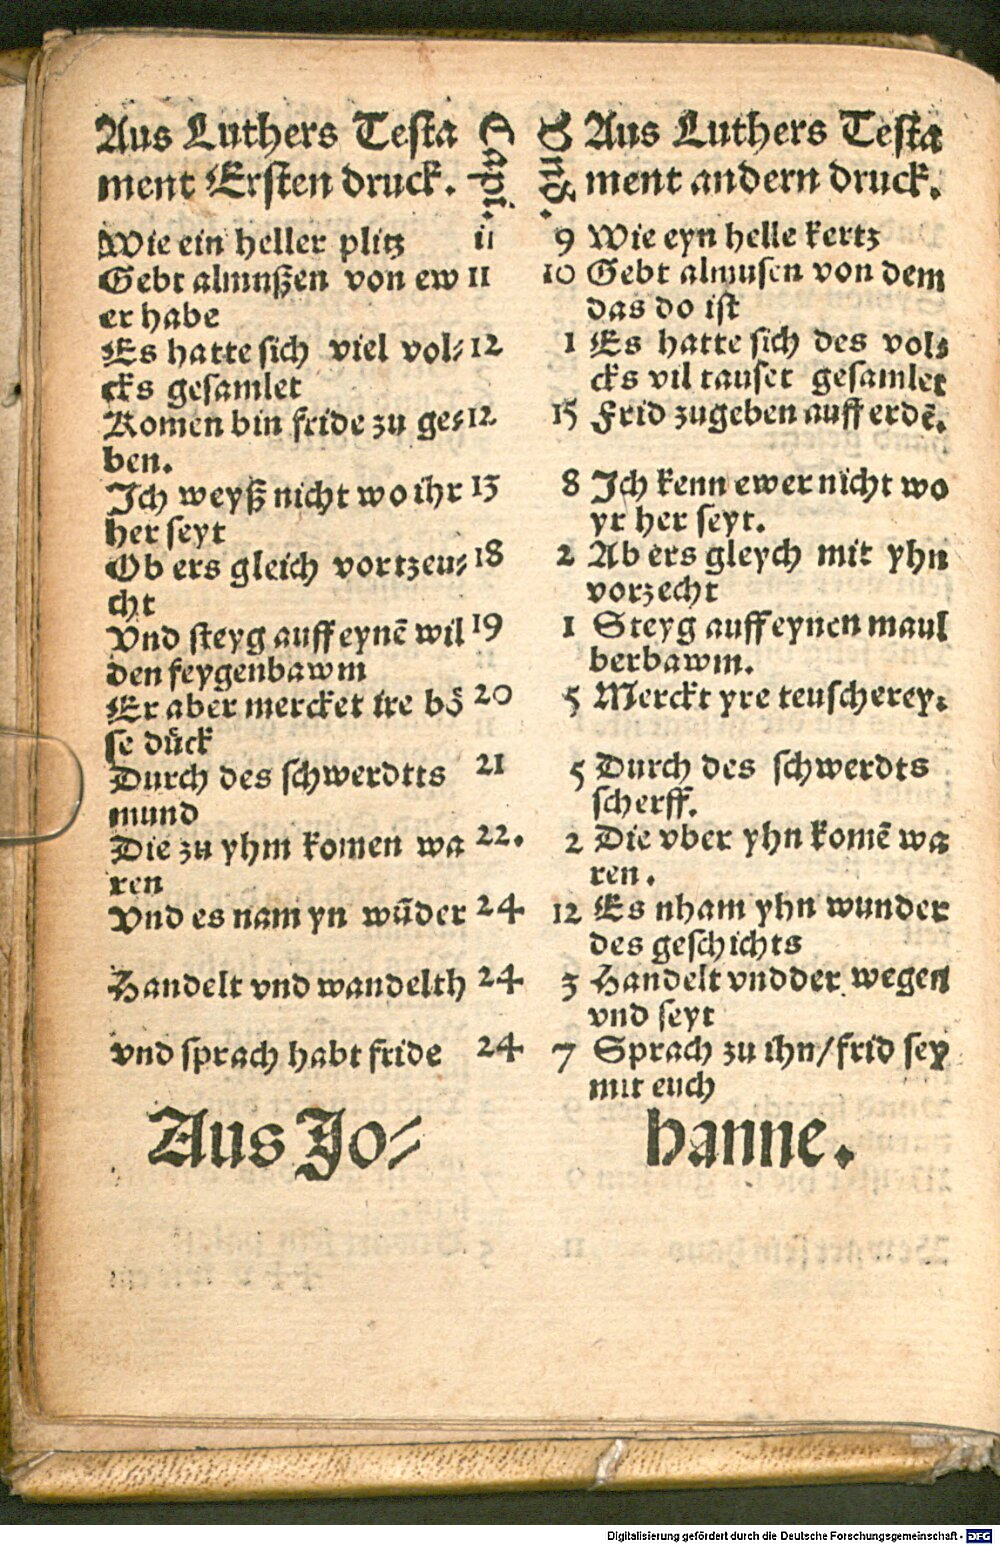 Aus Luthers Testa
ment Ersten druck.
Capi.
Wie ein heller plitz 11
Gebt almußen von ew 11
er habe
Es hatte sich viel vol⸗ 12
cks gesamlet
Komen bin fride zu ge⸗ 12
ben.
Ich weyß nicht wo ihr 13
her seyt
Ob ers gleich vortzeu⸗ 18
cht
Vnd steyg auff eynē wil 19
den feygenbawm
Er aber mercket ire bö 20
se dück
Durch des schwerdtts 21
mund
Die zu yhm komen wa 22.
ren
Vnd es nam yn wūder 24
Handelt vnd wandelth 24
vnd sprach habt fride 24
Aus Jo⸗
Aus Luthers Testa
ment andern druck.
9 Wie eyn helle kertz
10 Gebt almusen von dem
das do ist
1 Es hatte sich des vol⸗
cks vil tauset gesamlet
15 Frid zugeben auff erdē.
8 Ich kenn ewer nicht wo
yr her seyt.
2 Ab ers gleych mit yhn
vorzecht
1 Steyg auff eynen maul
berbawm.
5 Merckt yre teuscherey.
5 Durch des schwerdts
scherff.
2 Die vber yhn komē wa
ren.
12 Es nham yhn wunder
des geschichts
3 Handelt vndder wegen
vnd seyt
7 Sprach zu ihn/frid sey
mit euch
hanne.
Digitalisierung gefördert durch die Deutsche Forschungsgemeinschaft - DFG